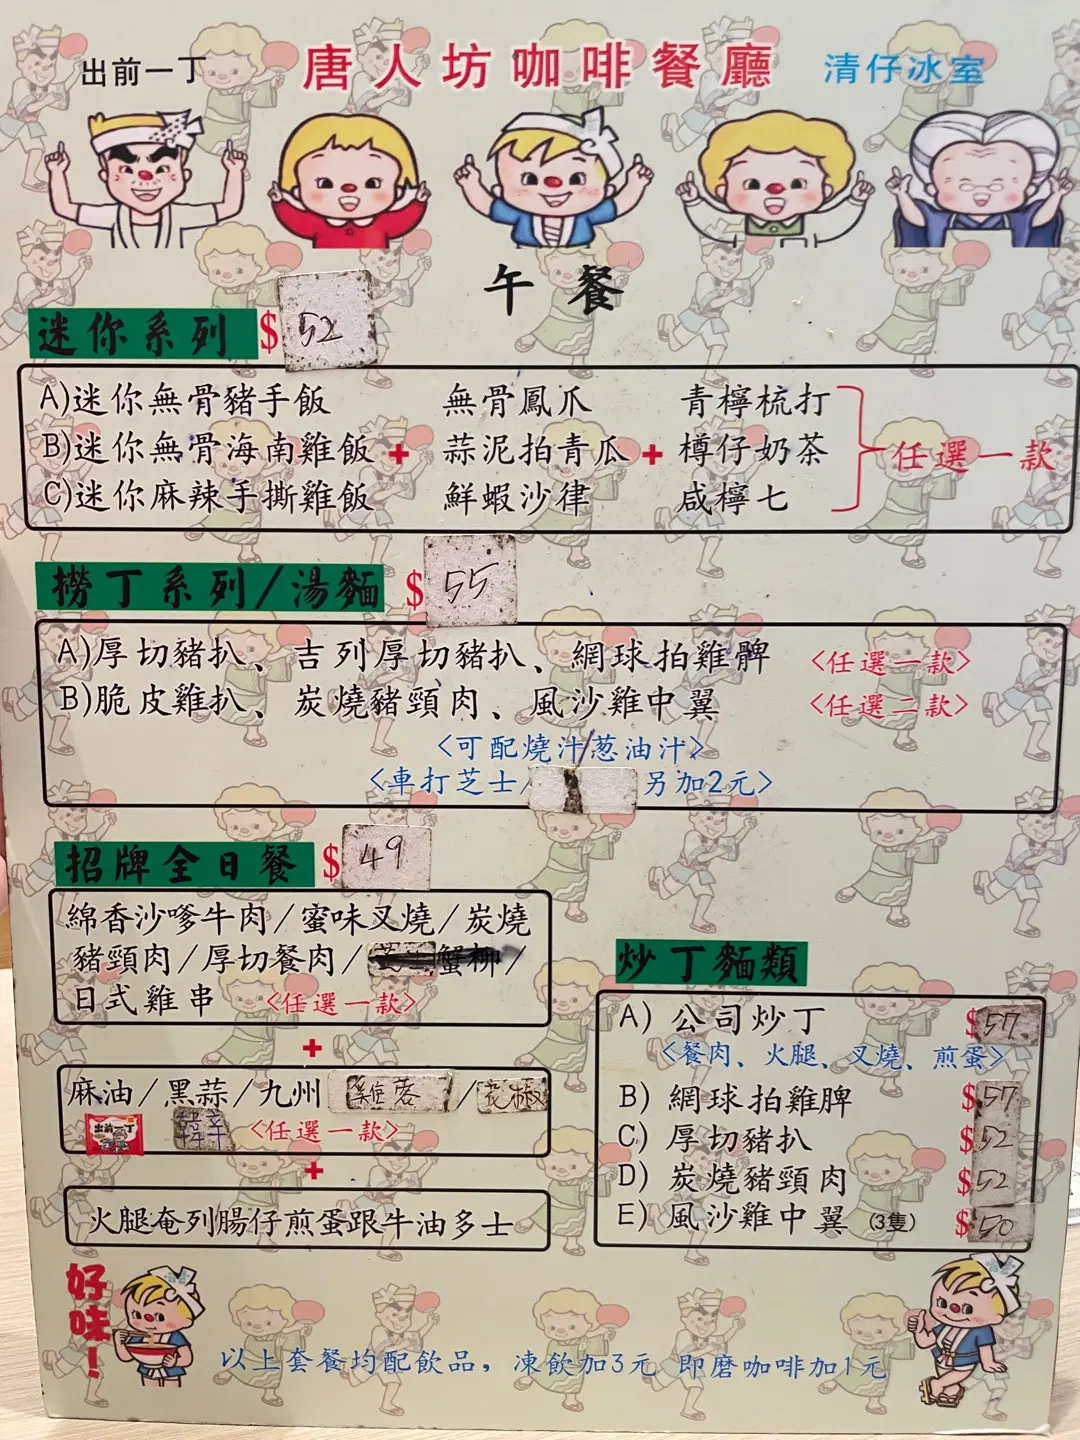 出前一丁 唐人坊咖啡餐廳 清仔冰室
午餐
迷你系列 $52
A)迷你無骨豬手飯 無骨鳳爪 青檸梳打
B)迷你無骨海南雞飯 + 蒜泥拍青瓜 + 樽仔奶茶 任選一款
C)迷你麻辣手撕雞飯 鮮蝦沙律 咸檸七
撈丁系列/湯麵 $55
A)厚切豬扒、吉列厚切豬扒、網球拍雞髀 <任選一款>
B)脆皮雞扒、炭燒豬頸肉、風沙雞中翼 <任選二款>
<可配燒汁/葱油汁>
<車打芝士/ 另加2元>
招牌全日餐 $49
綿香沙嗲牛肉/蜜味叉燒/炭燒
豬頸肉/厚切餐肉/蟹柳/
日式雞串 <任選一款>
+
麻油/黑蒜/九州 雞蓉/花椒
出前一丁 韓辛 <任選一款>
+
火腿奄列腸仔煎蛋跟牛油多士
炒丁麵類
A) 公司炒丁 $57
<餐肉、火腿、叉燒、煎蛋>
B) 網球拍雞脾 $57
C) 厚切豬扒 $52
D) 炭燒豬頸肉 $52
E) 風沙雞中翼 (3隻) $50
好味!
以上套餐均配飲品，凍飲加3元 即磨咖啡加1元